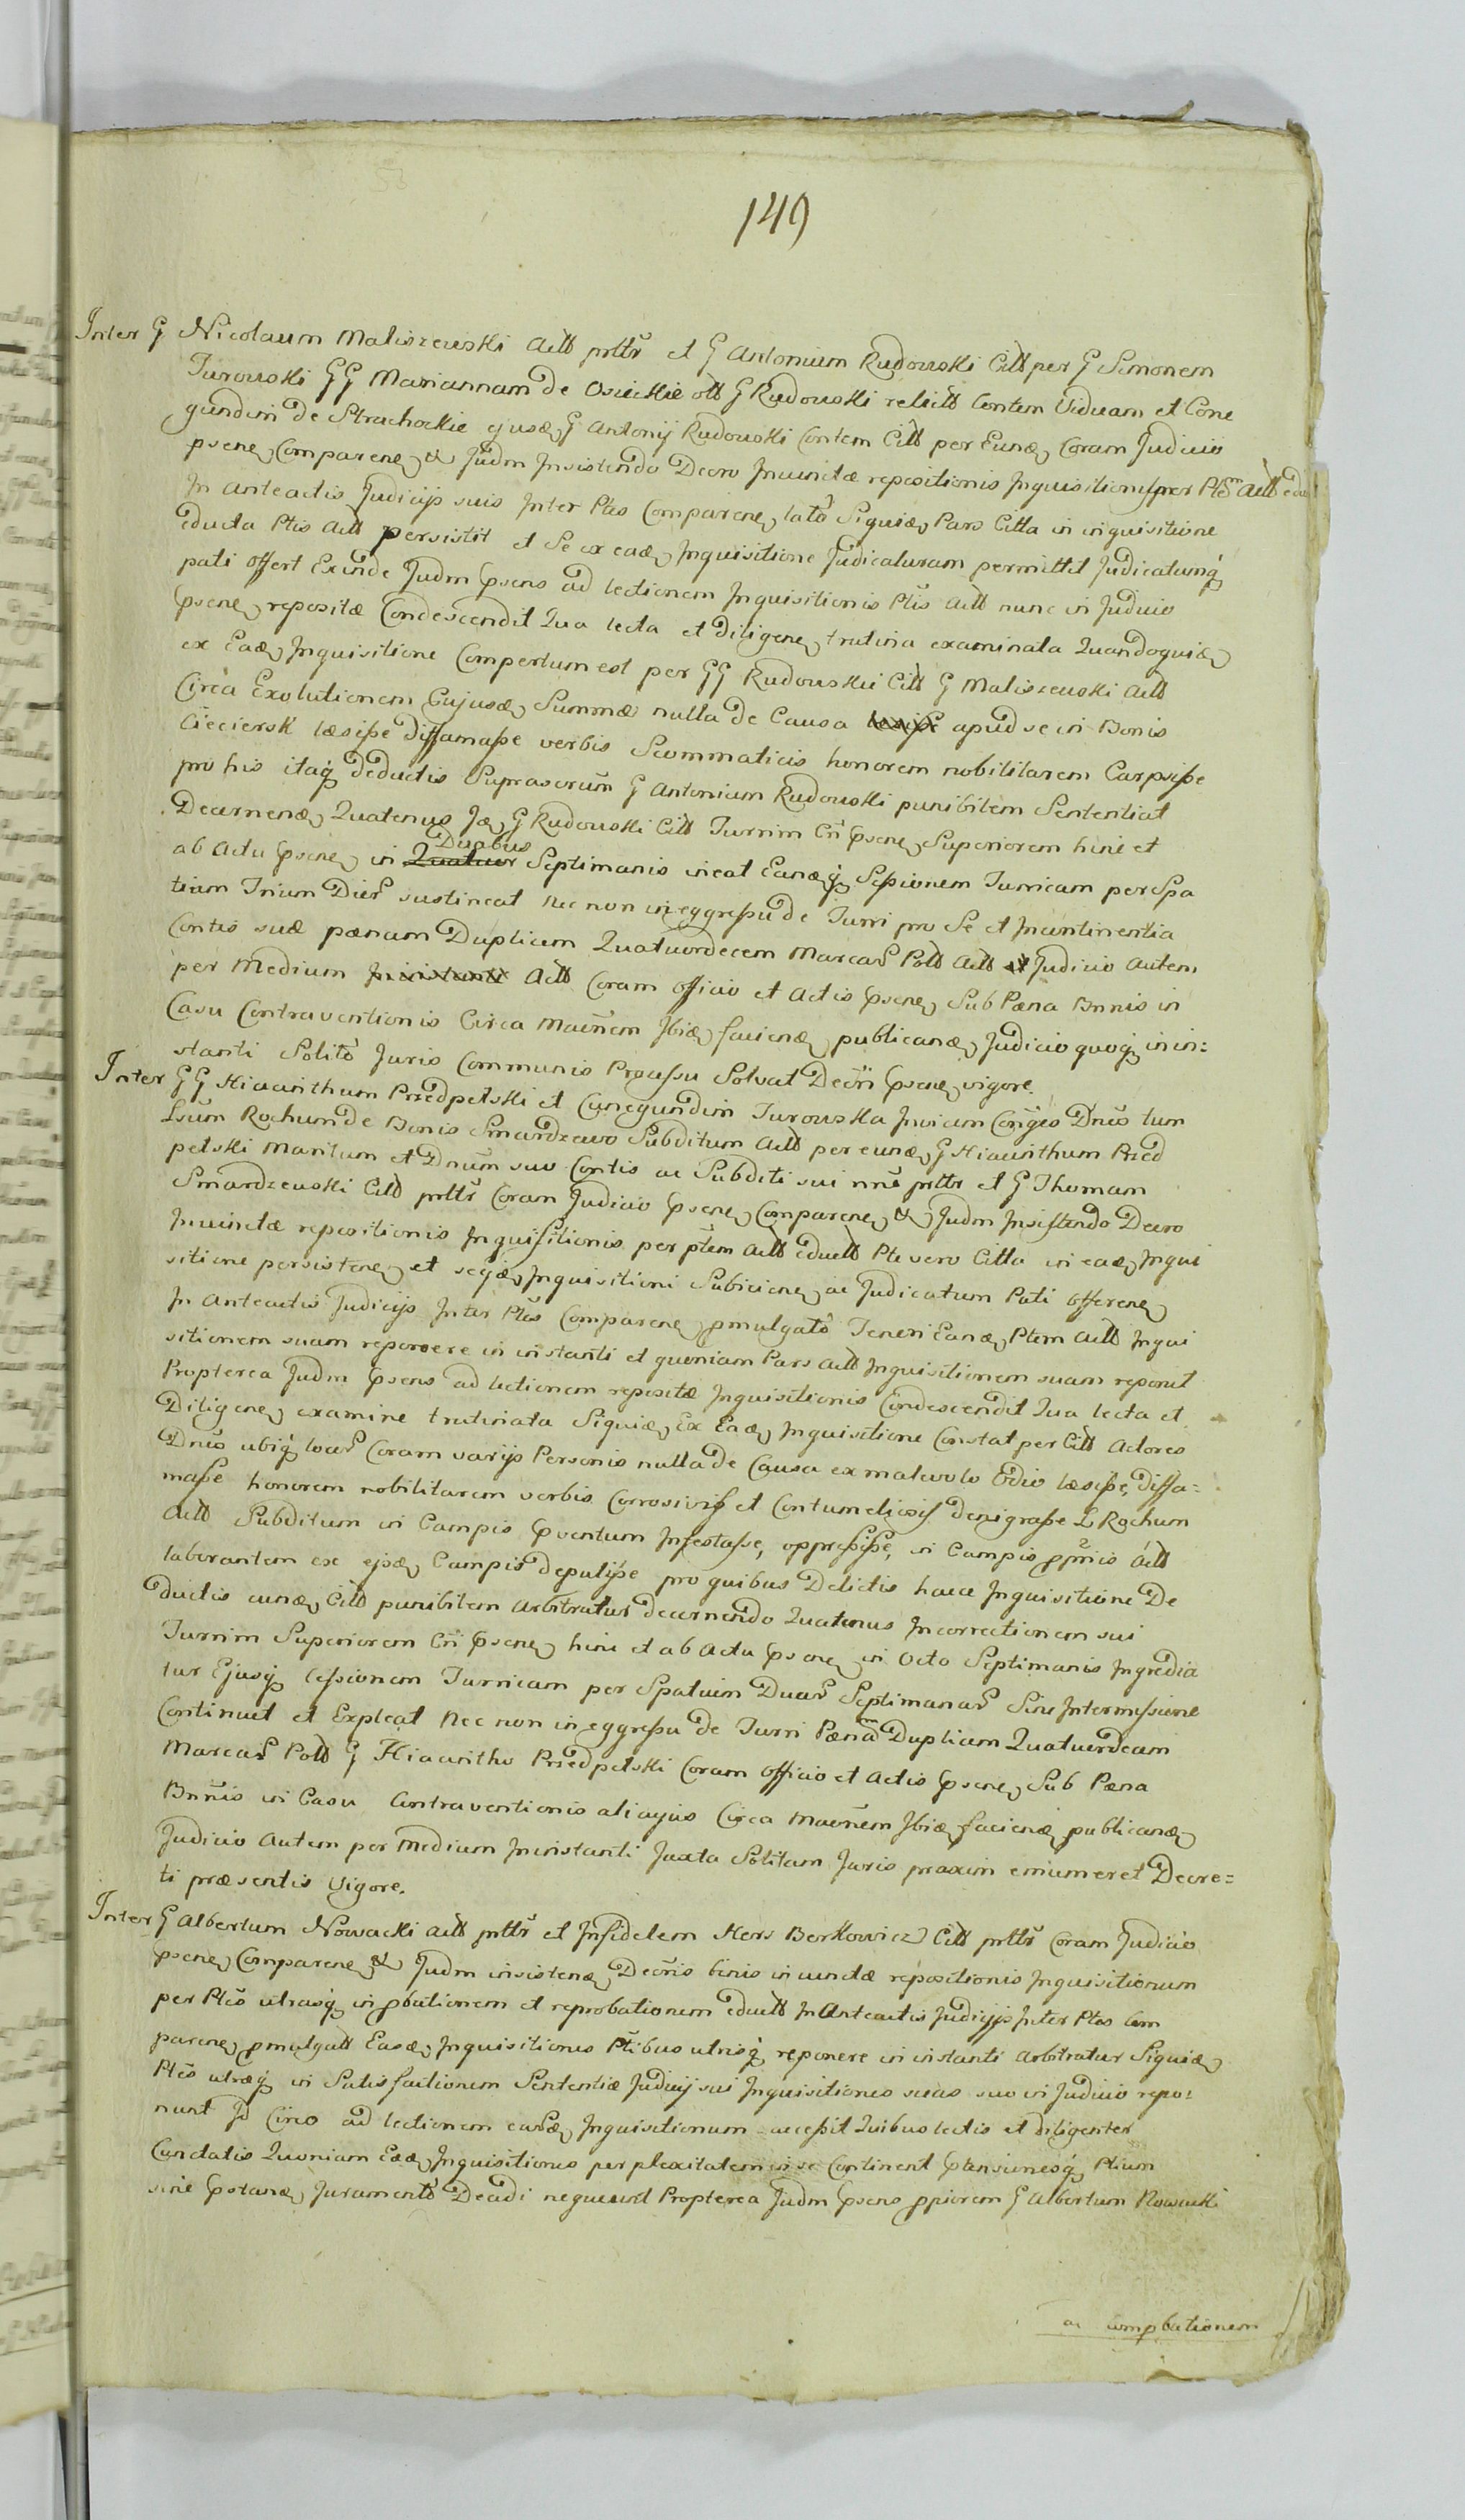 149
Inter G Nicolaum Maliszewski Actt prttr et G Antonium Rudowski Citt per G Simonem
Turowski GG Mariannam de Osieckie ott G Rudowski relictt Contem Viduam et Cone
gundim de Strachockie ejusd G Antonij Rudowski Contem Citt per Eund Coram Judicio
psene Comparen & Judm Insistendo Decro Iniunctæ repositionis Inquisitionis per Ptem Actt edu
In Anteactis Judicijs suis Inter Ptes Comparen lato Siquid Pars Citta in inquisitione
educta Ptis Actt persistit et Se ex ead Inquisitione Judicaturam permittit Judicatumq
pati offert Exinde Judm psens ad lectionem Inquisitionis Ptis Actt nunc in Judicio
psene repositæ Condescendit Qua lecta et Diligene trutina examinata Quandoquid
ex Ead Inquisitione Compertum est per GG Rudowskie Citt G Maliszewski Actt
Circa Exolutionem Cujusd Summæ nulla de Causa læsisse apud se in Bonis
Cieciersk læsisse Diffamasse verbis Scommaticis honorem nobilitarem Carpsisse
pro his itaq deductis Suprascrum G Antonium Rudowski punibilem Sententiat
Decernend Quatenus Id G Rudowski Citt Turrim Cri psene Superiorem hinc et
ab Actu psene in Quatuor Duabus Septimanis ineat Eandq Sessionem Turricam per Spa
tium Trium Dier sustineat Nec non in eggressu de Turri pro Se et Incontinentia
Contis suæ pænam Duplicem Quatuordecem Marcar Poll Actt et Judicio autem
per Medium Inistanti Actt Coram officio et Actis psene Sub Pæna Bnnis in
Casu Contraventionis Circa Maenem Ibid faciend publicand Judicio quoq in in=
stanti Solito Juris Communis Processu Solvat Decri psene vigore.
Inter GG Hiacinthum Przedpelski et Cunegundim Turowska Invicem Conges Dnos tum
Lsum Rochum de Bonis Smardzewo Subditum Actt per eund G Hiacinthum Przed
pelski Maritum et Dnum suo Contis ac Subditi sui nne prttr et G Thomam
Smardzewski Citt prttr Coram Judicio psene Comparen & Judm Insistendo Decro
Iniunctæ repositionis Inquisitionis per ptem Actt eductt Pte vero Citta in ead Inqui
sitione persistene et seqd Inquisitioni Subiiciene ac Judicatum Pati offerene
In Anteactis Judicijs Inter Ptes Comparene pmulgato Teneri Eand Ptem Actt Inqui
sitionem suam reponere in instanti et quoniam Pars Actt Inquisitionem suam reponit
Propterea Judm psens ad lectionem repositæ Inquisitionis Condescendit Qua lecta et
Diligene examine trutinata Siquid Ex Ead Inquisitione Constat per Citt Actores
Dnos ubiq locor Coram varijs Personis nulla de Causa ex malevolo Odio læsisse, diffa=
masse honorem nobilitarem verbis Corrosivis et Contumeliosis denigrasse L Rochum
Actt Subditum in Campis psentum Infestasse, oppressisse, in Campis ppriis Actt
laborantem ex ejsd Campis depulisse pro quibus Delictis hacce Inquisitione De
ductis eund Citt punibilem arbitratur decernendo Quatenus In correctionem sui
Turrim Superiorem Cri psene hinc et ab Actu psene in Octo Septimanis Ingredia
tur Ejusq cessionem Turricam per Spatium Duar Septimanar Sine Intermissione
Continuet et Expleat Nec non in eggressu de Turri Pænam Duplicem Quatuordecem
Marcar Poll G Hiacintho Przedpelski Coram officio et Actis psene Sub Pæna
Bnnis in Casu Contraventionis alicujus Circa Maenem Ibid faciend publicand
Judicio Autem per Medium In instanti Juxta Solitam Juris praxim enumeret Decre=
ti præsentis Vigore.
Inter G Albertum Nowacki Actt prttr et Infidelem Hers Berkowicz Citt prttr Coram Judicio
psene Comparene & Judm insistend Decris binis iniunctæ repositionis Inquisitionum
per Ptes utrasq in pbationem et reprobationem eductt In Anteactis Judicijs Inter Ptes Com
parene pmulgatt Easd Inquisitiones Ptibus utrisq reponere in instanti Arbitratur Siquid
Ptes utræq in Satisfactionem Sententiæ Judicij sui Inquisitiones suas suo in Judicio repo=
nunt Id Circo ad lectionem earsd Inquisitionum accessit Quibus lectis et diligenter
Cunctatis Quoniam Eæd Inquisitiones perplexitatem in se Continent ptensionesq Ptium
sine pstand Juramento Decidi nequeunt Propterea Judm psens ppiorem G Albertum Nowacki
ac compbationem